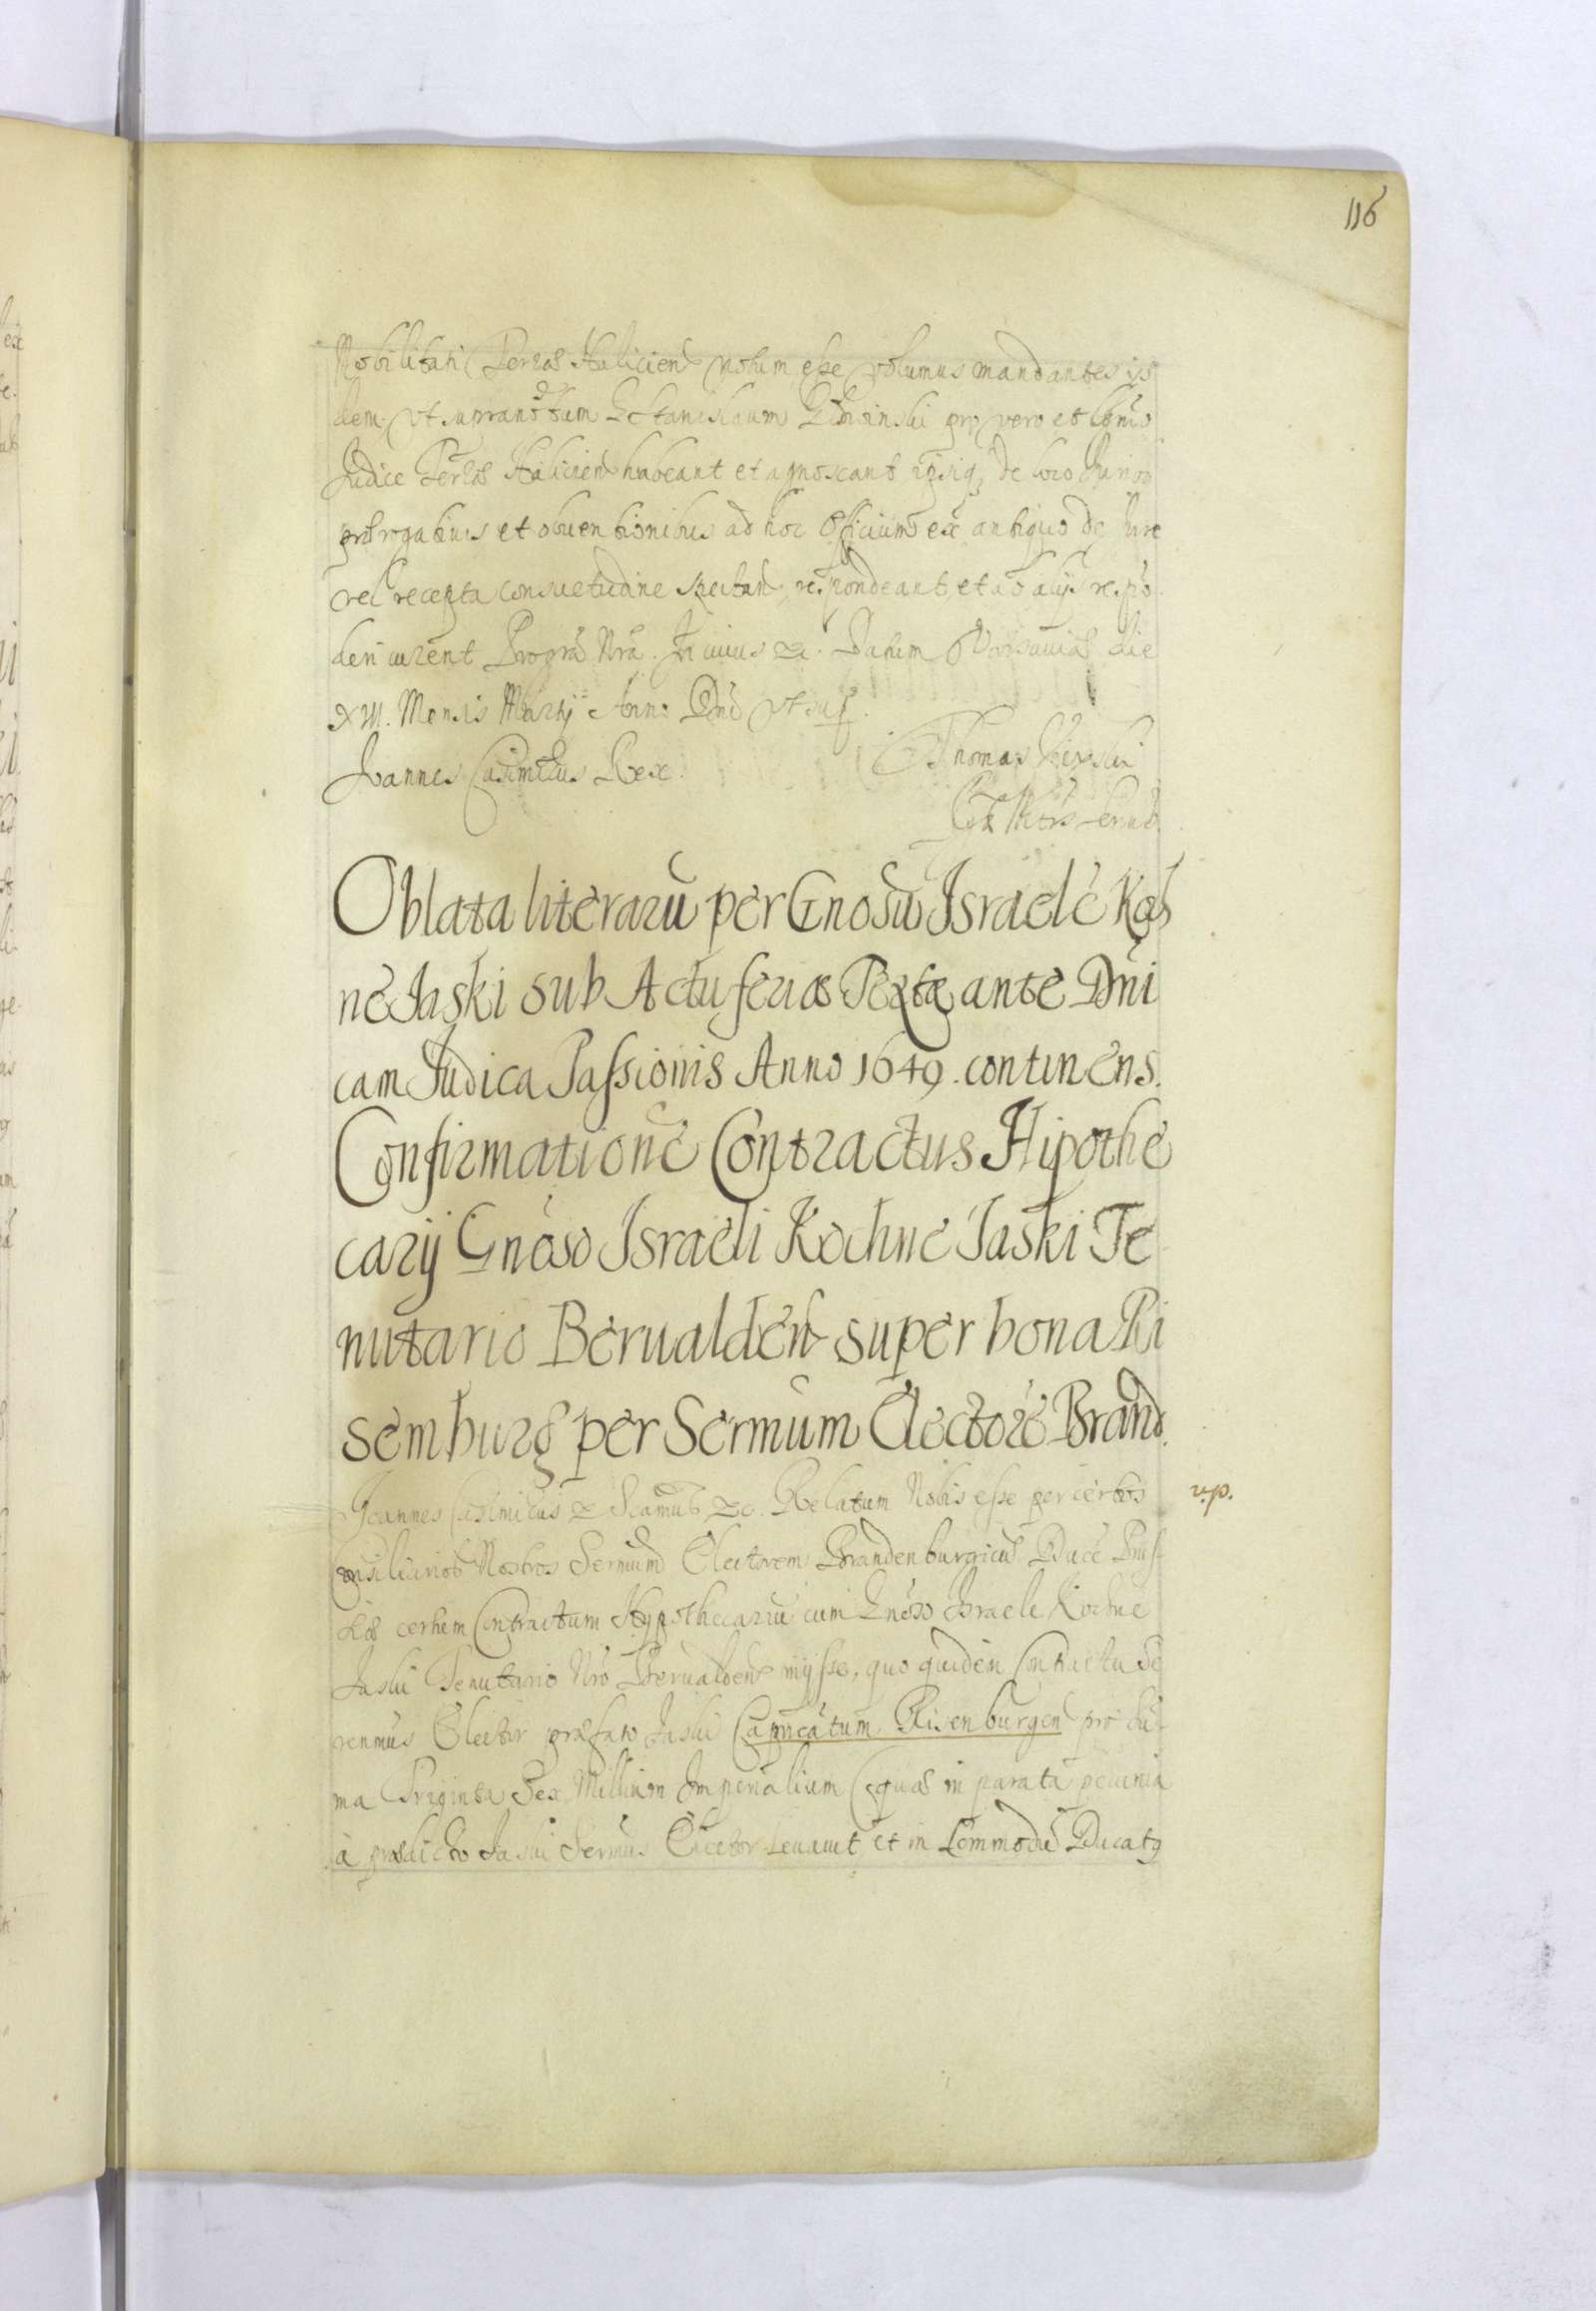 116
Nobilitati Terræ Halicien notum esse volumus mandantes ijs
dem. Vt supranōtum Stanislaum pro vero et Ltīmo
Judice Terræ Halicien habeant et agnoscant ipsiq; de loco
prærogatiuis et obuentionibus ad hoc Officium ex antiquo de Jure
vel recepta consuetudine spectan. respondeant, et ab alijs respō
deri curent Pro grā Nrā. In cuius &. Datum Varsauiæ die
XIII. Mensis Martij Anno Dni vt sup.
Joannes Casimirus Rex.
Thomas
Oblata literarū per Gnosū Israelē Koch
ne Jaski sub Actu feriæ Sextæ ante Dni
cam Judica Passionis Anno 1649. continens.
Confirmationē Contractus Hipothe
carij Gnōso Israeli Kochne Jaski Te
nutario Berualden super bona Ri
semburg per Sermum Electorē Brand.
Joannes Casimirus & Scimus &c. Relatum Nobis esse per certos v.p.
Consiliarios Nostros Sermum Electorem Brandenburgicū Ducē Prus-
siæ certum Contractum Hypothecariū cum Gnōso Israele Kochne
Jaski Tenutario Nrō Berualden inijsse, quo quidem Contractu Se
renmus Elector præfato Jaski Capitcātum Risenburgen pro sū-
ma Triginta Sex Millium Imperialium (quas in parata pecunia
à prædicto Jaski Sermus Elector Leuauit et in Commodū Ducatq